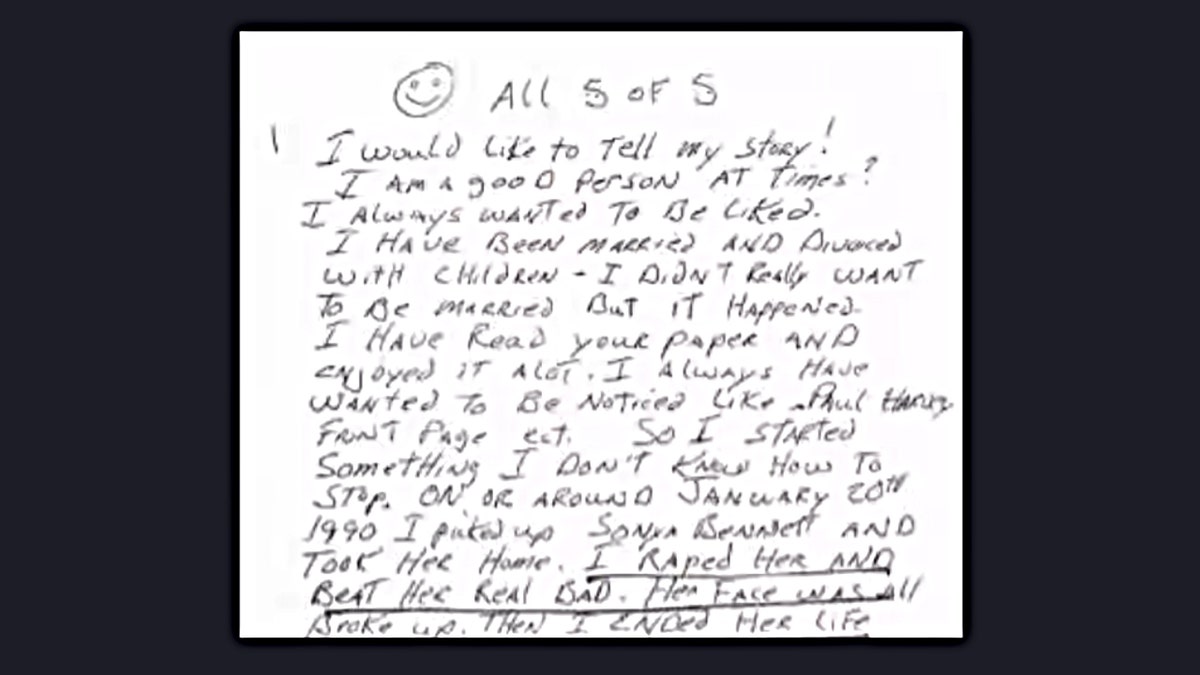 ☺ All 5 OF 5
1 I would Like to Tell my story!
I Am a good Person AT Times?
I Always wanted To Be Liked.
I Have Been married AND Divorced
with children - I DIDNT Really WANT
To Be married But iT Happened.
I Have Read your paper AND
enjoyed iT Alot. I Always Have
wanted To Be Noticed Like Paul Harvey
Front Page ect. So I started
Something I DON'T Know How To
STop. ON OR AROUND JANUARY 20TH
1990 I picked up Sonya Bennett AND
Took Her Home. I Raped Her AND
Beat Her Real BAD. Her Face was all
Broke up. Then I ended Her Life